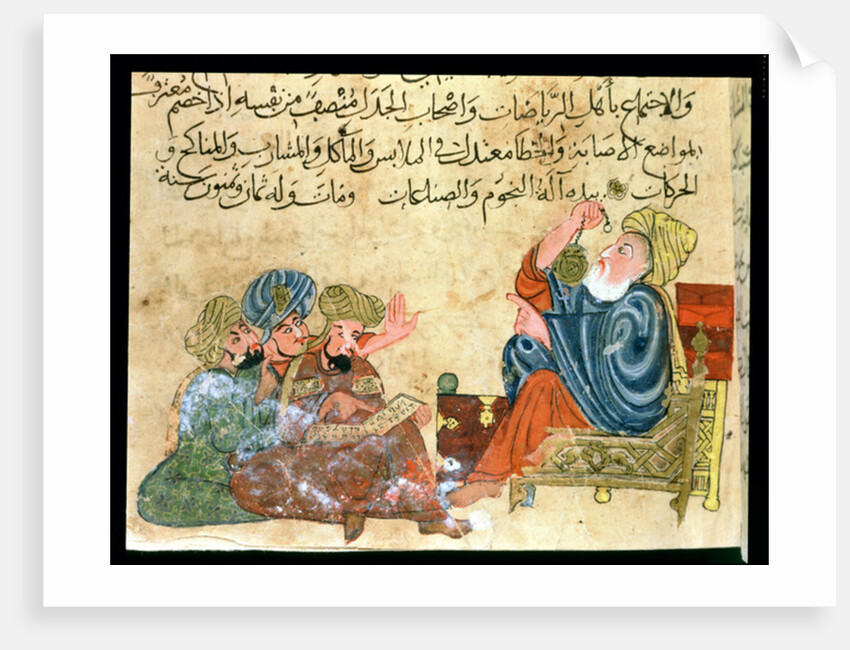 والاجتماع بأهل الرياضات واصحاب الجدل منصف من نفسه اذا خصم معترف
المواضع الاصابة والخطا معتدل في الملابس والمآكل والمشارب والمناكح و
الحركات بيده آلة النجوم والصناعات ومات وله ثمان وثمنون سنة